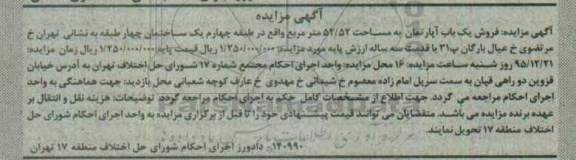 آگهی مزایده
آگهی مزایده: فروش یک باب آپارتمان به مساحت ۵۲/۵۲ متر مربع واقع در طبقه چهارم یک ساختمان چهار طبقه به نشانی تهران خ
مرتضوی خ عیال بارگان پ۳۱ با قدمت سه ساله ارزش پایه مورد مزایده: ۱/۲۵۰/۰۰۰/۰۰۰ ریال قیمت پایه ۱/۲۵۰/۰۰۰/۰۰۰ ریال زمان مزایده:
۹۵/۱۲/۲۱ روز شنبه ساعت مزایده: ۱۶ محل مزایده: واحد اجرای احکام مجتمع شماره ۱۷ شورای حل اختلاف تهران به آدرس خیابان
قزوین دو راهی قپان به سمت سرپل امام زاده معصوم خ شیبانی خ مهدوی خ عارف کوچه شعبانی محل بازدید: جهت هماهنگی به واحد
اجرای احکام مراجعه می گردد. جهت اطلاع از مشخصات کامل حکم به اجرای احکام مراجعه گردد. توضیحات: هزینه نقل و انتقال بر
عهده برنده مزایده می باشد. متقاضیان می توانند قیمت پیشنهادی خود را تا قبل از برگزاری مزایده به واحد اجرای احکام شورای حل
اختلاف منطقه ۱۷ تحویل نمایند.
۱۴۰۹۹۰- دادورز اجرای احکام شورای حل اختلاف منطقه ۱۷ تهران